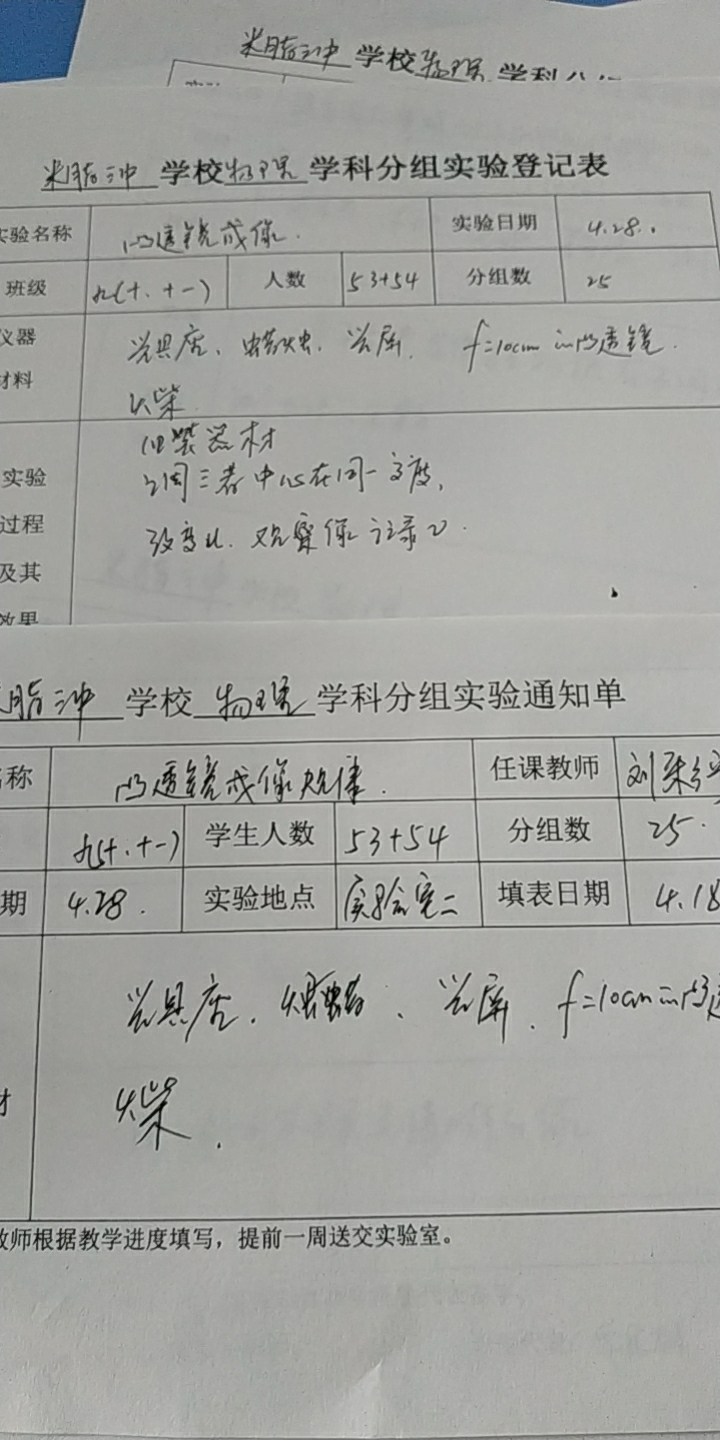 米脂三中 学校 物理 学科分
米脂三中 学校 物理 学科分组实验登记表
实验名称 凸透镜成像. 实验日期 4.28.
班级 九(十.十一) 人数 53+54 分组数 25
仪器 光具座、蜡烛、光屏. f=10cm的凸透镜.
材料 火柴
(1)组装器材
实验 2)调三者中心在同一高度,
过程 改变u.观察像 记录v.
及其
效果
脂三中 学校 物理 学科分组实验通知单
称 凸透镜成像规律. 任课教师 刘
九(十.十一) 学生人数 53+54 分组数 25.
期 4.28. 实验地点 实验室二 填表日期 4.18
光具座.蜡烛、光屏.f=10cm的凸透
材 火柴.
教师根据教学进度填写，提前一周送交实验室。